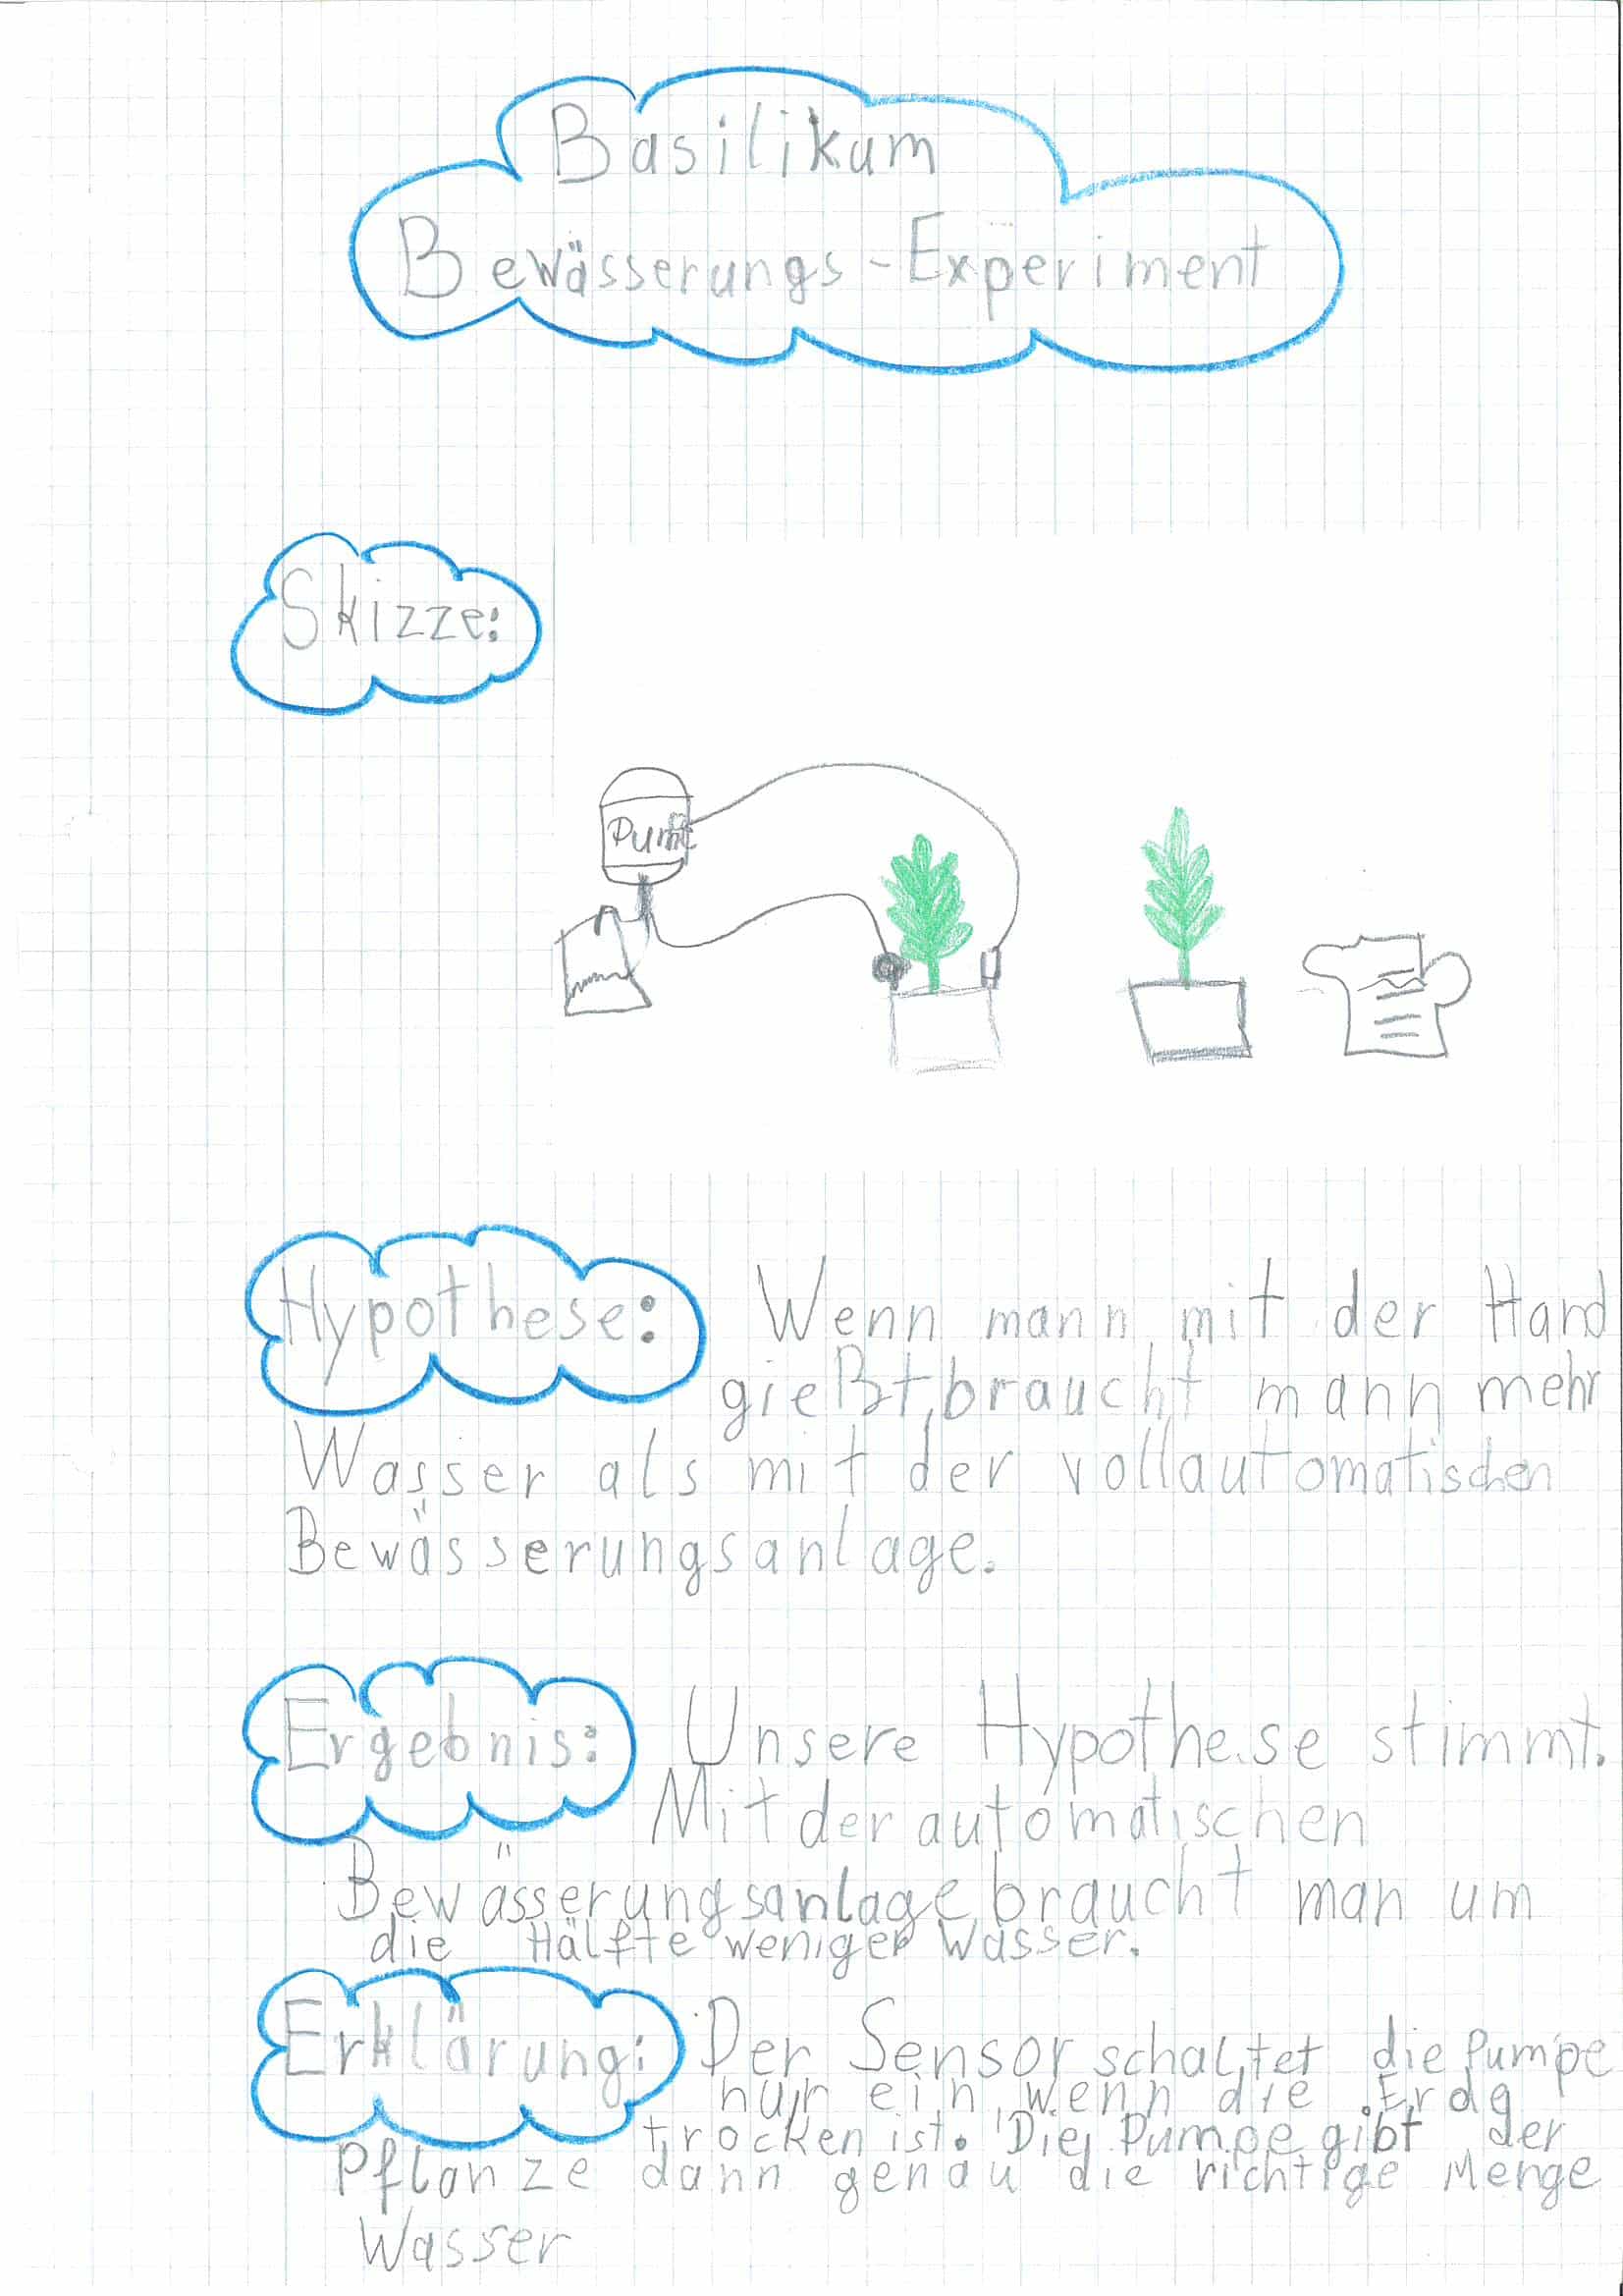 Basilikum
Bewässerungs-Experiment
Skizze:
Hypothese: Wenn mann mit der Hand
gießt, braucht mann mehr
Wasser als mit der vollautomatischen
Bewässerungsanlage.
Ergebnis: Unsere Hypothese stimmt.
Mit der automatischen
Bewässerungsanlage braucht man um
die Hälfte weniger Wasser.
Erklärung: Der Sensor schaltet die Pumpe
nur ein, wenn die Erde
trocken ist. Die Pumpe gibt der
Pflanze dann genau die richtige Menge
Wasser